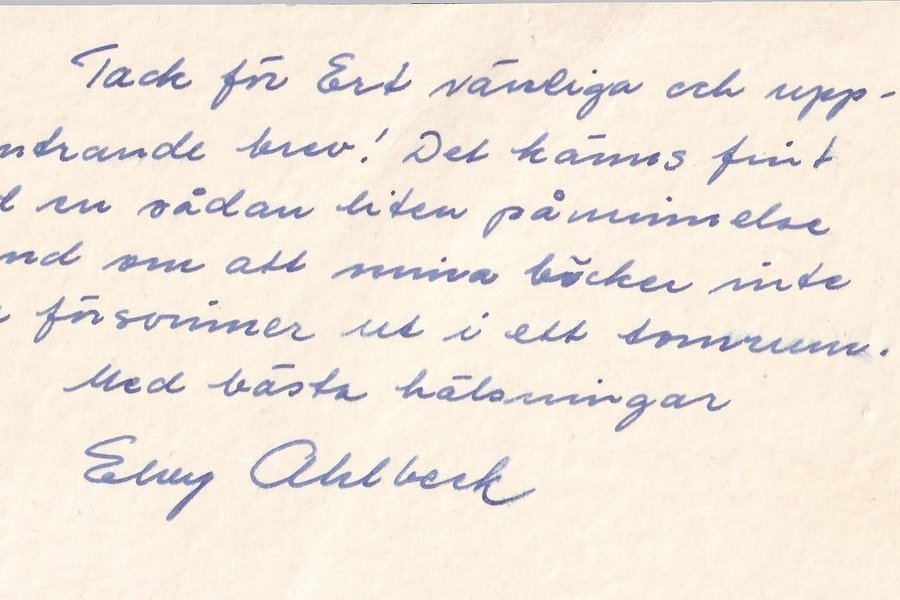 Tack för Ert vänliga och upp-
ntrande brev! Det känns fint
d en sådan liten påminnelse
nd om att mina böcker inte
försvinner ut i ett tomrum.
Med bästa hälsningar
Elvy Ahlbeck